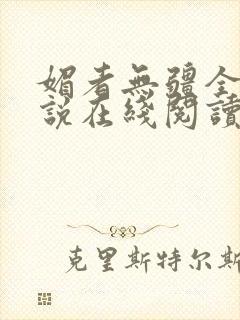 媚者無疆全
說在綫閱讀
克里斯特尔斯